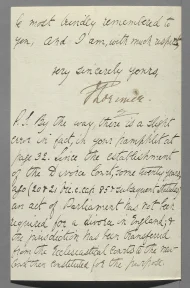 be most kindly remembered to
you, and I am, with much respect,
very sincerely yours,
P.S. By the way, there is a slight
error in fact, in your pamphlet at
page 32. Since the establishment
of the Divorce Court, some twenty years
ago (20 & 21 Vic. c. cap 85 & subsequent statutes)
an act of Parliament has not been
required for a divorce in England; &
the jurisdiction has been transferred
from the Ecclesiastical Courts to the new
Court then constituted for the purpose.